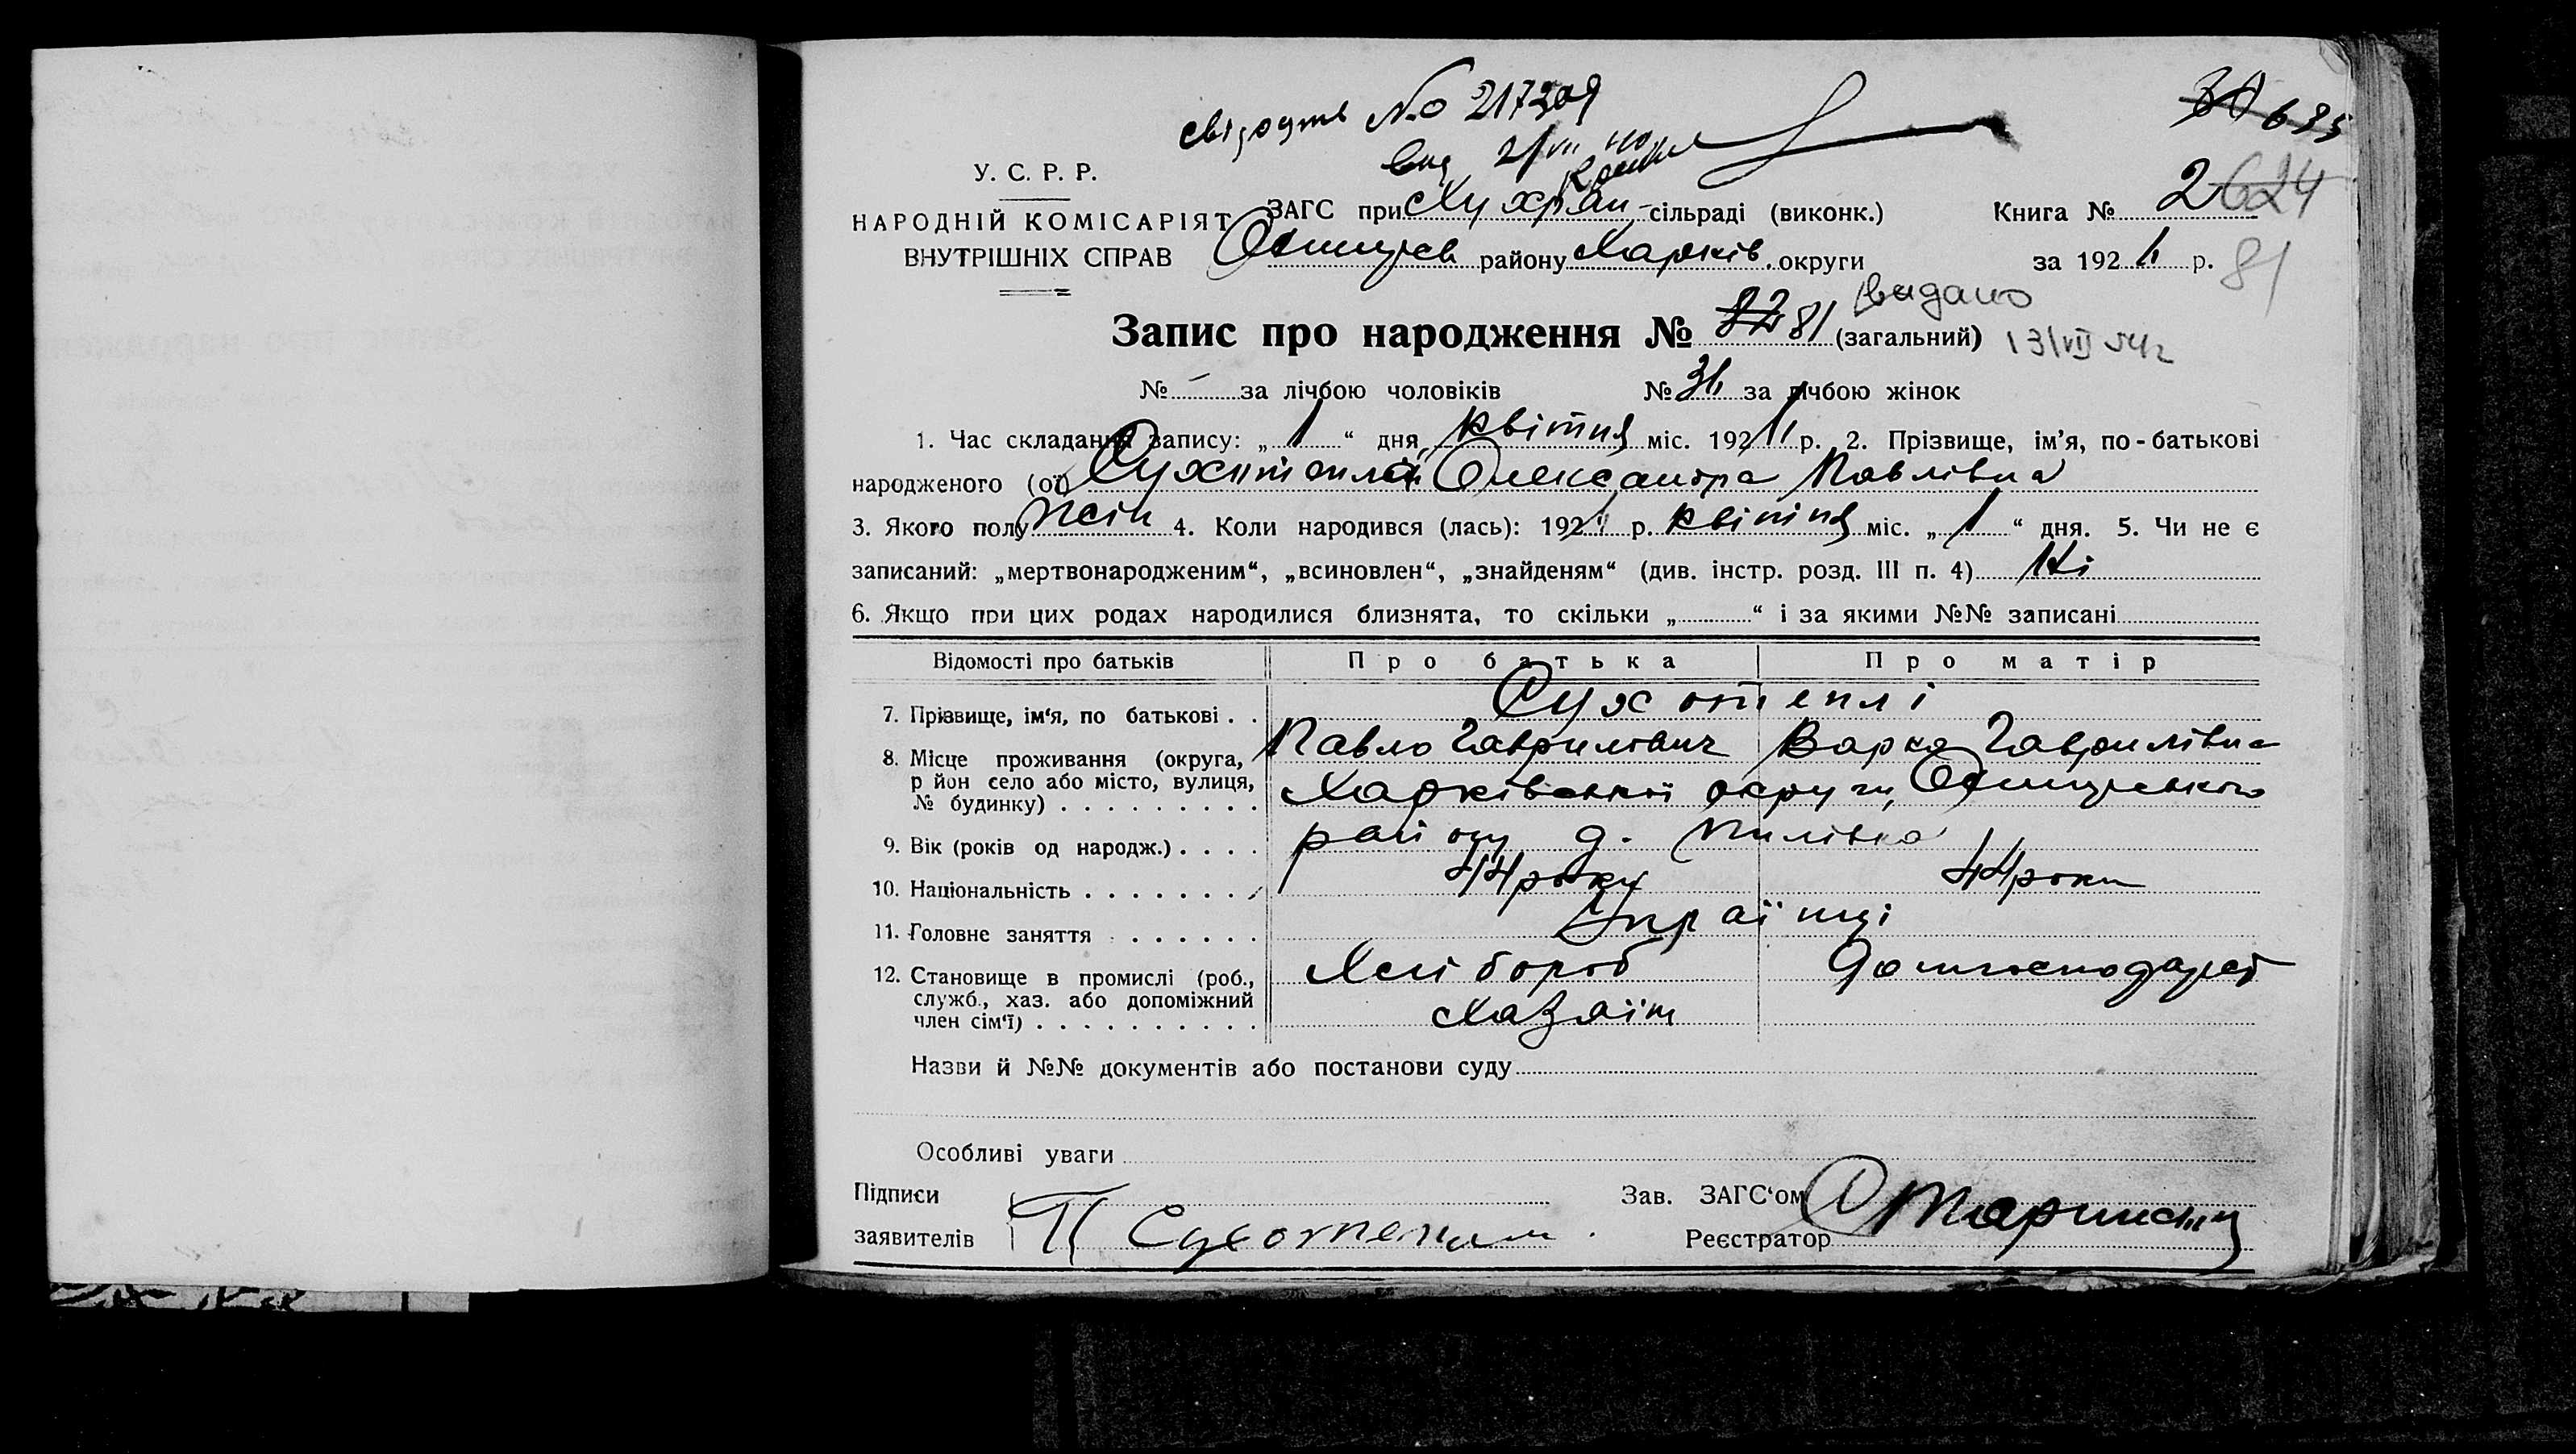 свідоцтв No 217309
вид 21/VII 40
30 635
У. С. Р. Р.
НАРОДНІЙ КОМІСАРІЯТ
ВНУТРІШНІХ СПРАВ
ЗАГС при Хухрян. сільраді (виконк.)
Книга № 2 624
району Харків. округи
за 192 1 р. 81
видано
Запис про народження № 82 81 (загальний) 13/VII 54 г
№ - за лічбою чоловіків № 31 за лічбою жінок
1. Час складання запису: „ 1 “ дня квітня міс. 192 1 р. 2. Прізвище, ім’я, по-батькові
народженого (ої) Олександра Павлівна
3. Якого полу жін 4. Коли народився (лась): 192 р. квітня міс. „ 1 “ дня. 5. Чи не є
записаний: „мертвонародженим“, „всиновлен“, „знайденям“ (див. інстр. розд. III п. 4) Ні
6. Якщо при цих родах народилися близнята, то скільки „ “ і за якими №№ записані
Відомості про батьків Про батька Про матір
7. Прізвище, ім‘я, по батькові . . Сухотеплі
Павло Гаврилович Варка Гаврилівна
8. Місце проживання (округа,
р йон село або місто, вулиця,
№ будинку) . . . . . . . . . Харківської округи,
9. Вік (років од народж.) . . . . району д. Пилівка
10. Національність . . . . . . . . 44 роки 44 роки
11. Головне заняття . . . . . . Українці
12. Становище в промислі (роб., Хлібороб Домгосподарст
служб., хаз. або допоміжний
член сім‘ї) . . . . . . . . . . Хазяїн
Назви й №№ документів або постанови суду
Особливі уваги
Підписи
заявителів П Сухотеплий
Зав. ЗАГС‘ом
Реєстратор